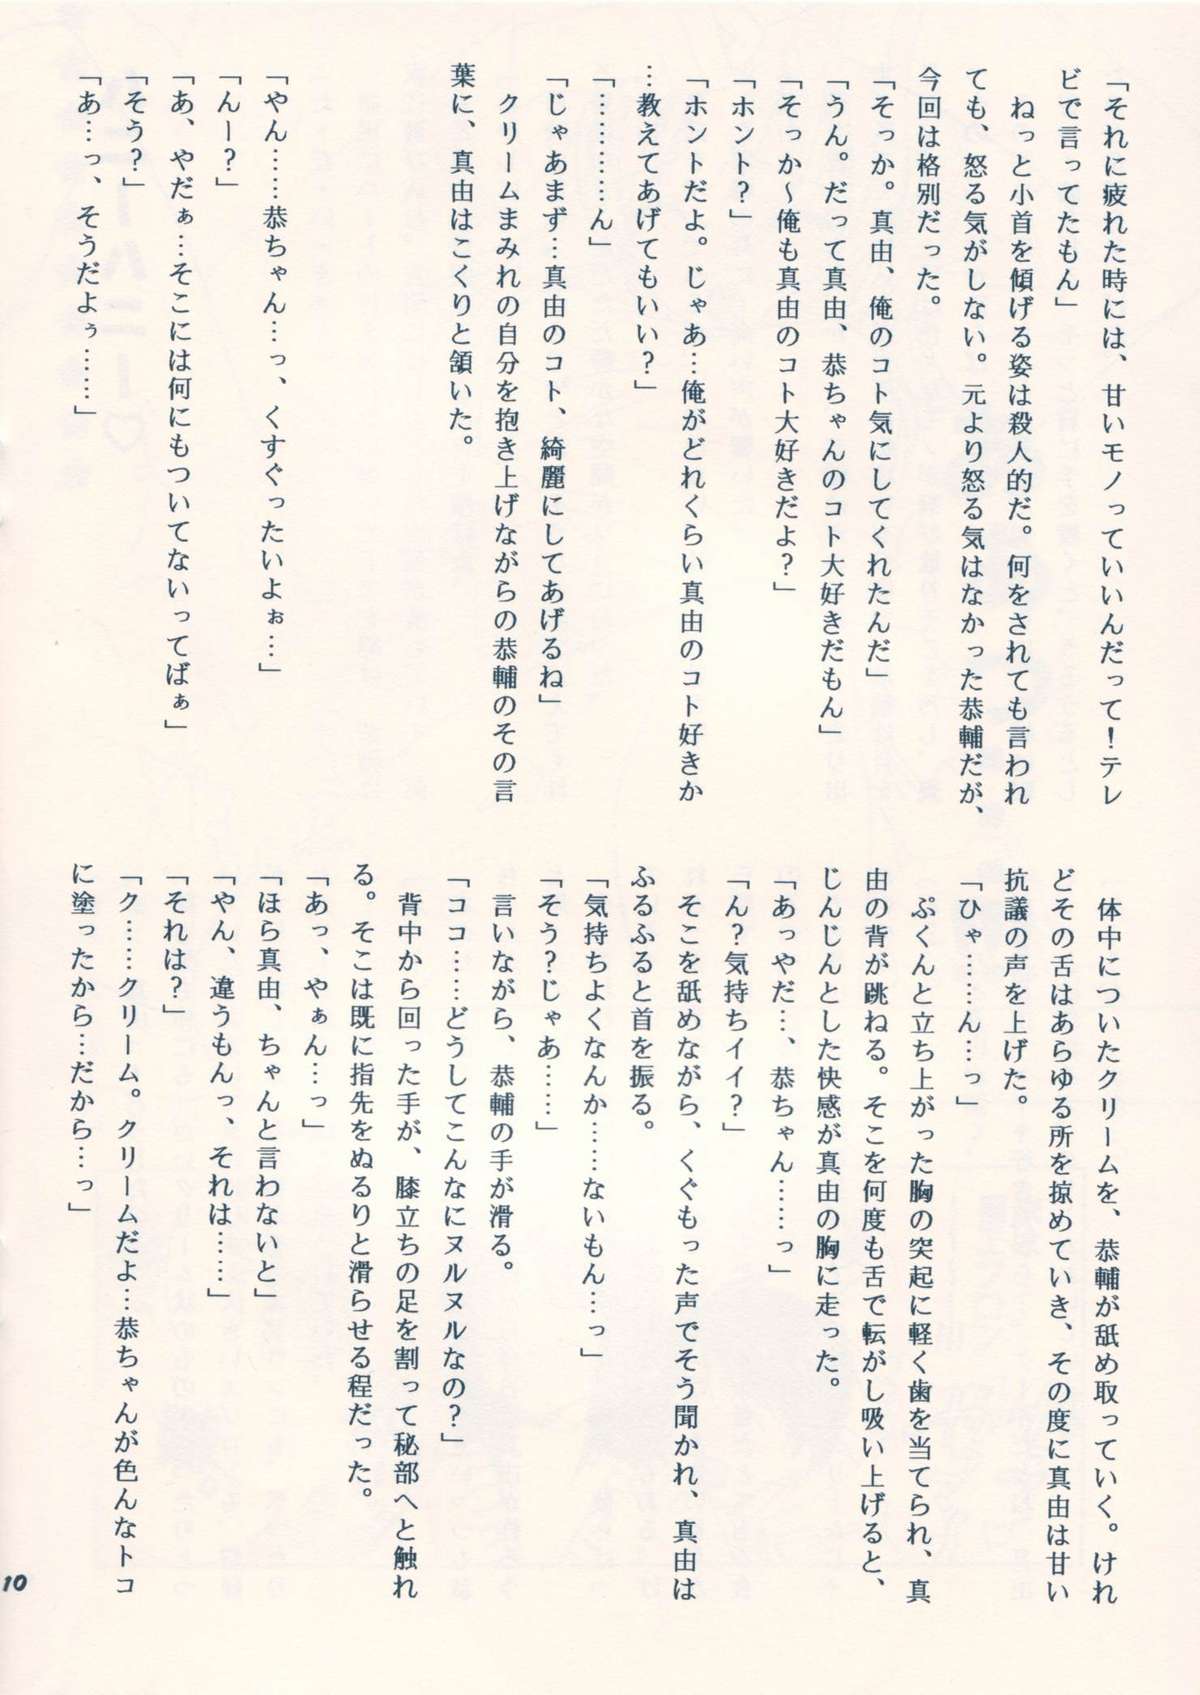 「それに疲れた時には、甘いモノっていいんだって！テレ
ビで言ってたもん」
　ねっと小首を傾げる姿は殺人的だ。何をされても言われ
ても、怒る気がしない。元より怒る気はなかった恭輔だが、
今回は格別だった。
「そっか。真由、俺のコト気にしてくれたんだ」
「うん。だって真由、恭ちゃんのコト大好きだもん」
「そっか～俺も真由のコト大好きだよ？」
「ホント？」
「ホントだよ。じゃあ…俺がどれくらい真由のコト好きか
…教えてあげてもいい？」
「…………ん」
「じゃあまず…真由のコト、綺麗にしてあげるね」
　クリームまみれの自分を抱き上げながらの恭輔のその言
葉に、真由はこくりと頷いた。
「やん……恭ちゃん…っ、くすぐったいよぉ…」
「んー？」
「あ、やだぁ…そこには何にもついてないってばぁ」
「そう？」
「あ…っ、そうだよぅ……」
　体中についたクリームを、恭輔が舐め取っていく。けれ
どその舌はあらゆる所を掠めていき、その度に真由は甘い
抗議の声を上げた。
「ひゃ……ん…っ」
　ぷくんと立ち上がった胸の突起に軽く歯を当てられ、真
由の背が跳ねる。そこを何度も舌で転がし吸い上げると、
じんじんとした快感が真由の胸に走った。
「あっやだ…、恭ちゃん……っ」
「ん？気持ちイイ？」
　そこを舐めながら、くぐもった声でそう聞かれ、真由は
ふるふると首を振る。
「気持ちよくなんか……ないもん…っ」
「そう？じゃあ……」
　言いながら、恭輔の手が滑る。
「ココ……どうしてこんなにヌルヌルなの？」
　背中から回った手が、膝立ちの足を割って秘部へと触れ
る。そこは既に指先をぬるりと滑らせる程だった。
「あっ、やぁん…っ」
「ほら真由、ちゃんと言わないと」
「やん、違うもんっ、それは……」
「それは？」
「ク……クリーム。クリームだよ…恭ちゃんが色んなトコ
に塗ったから…だから…っ」
10